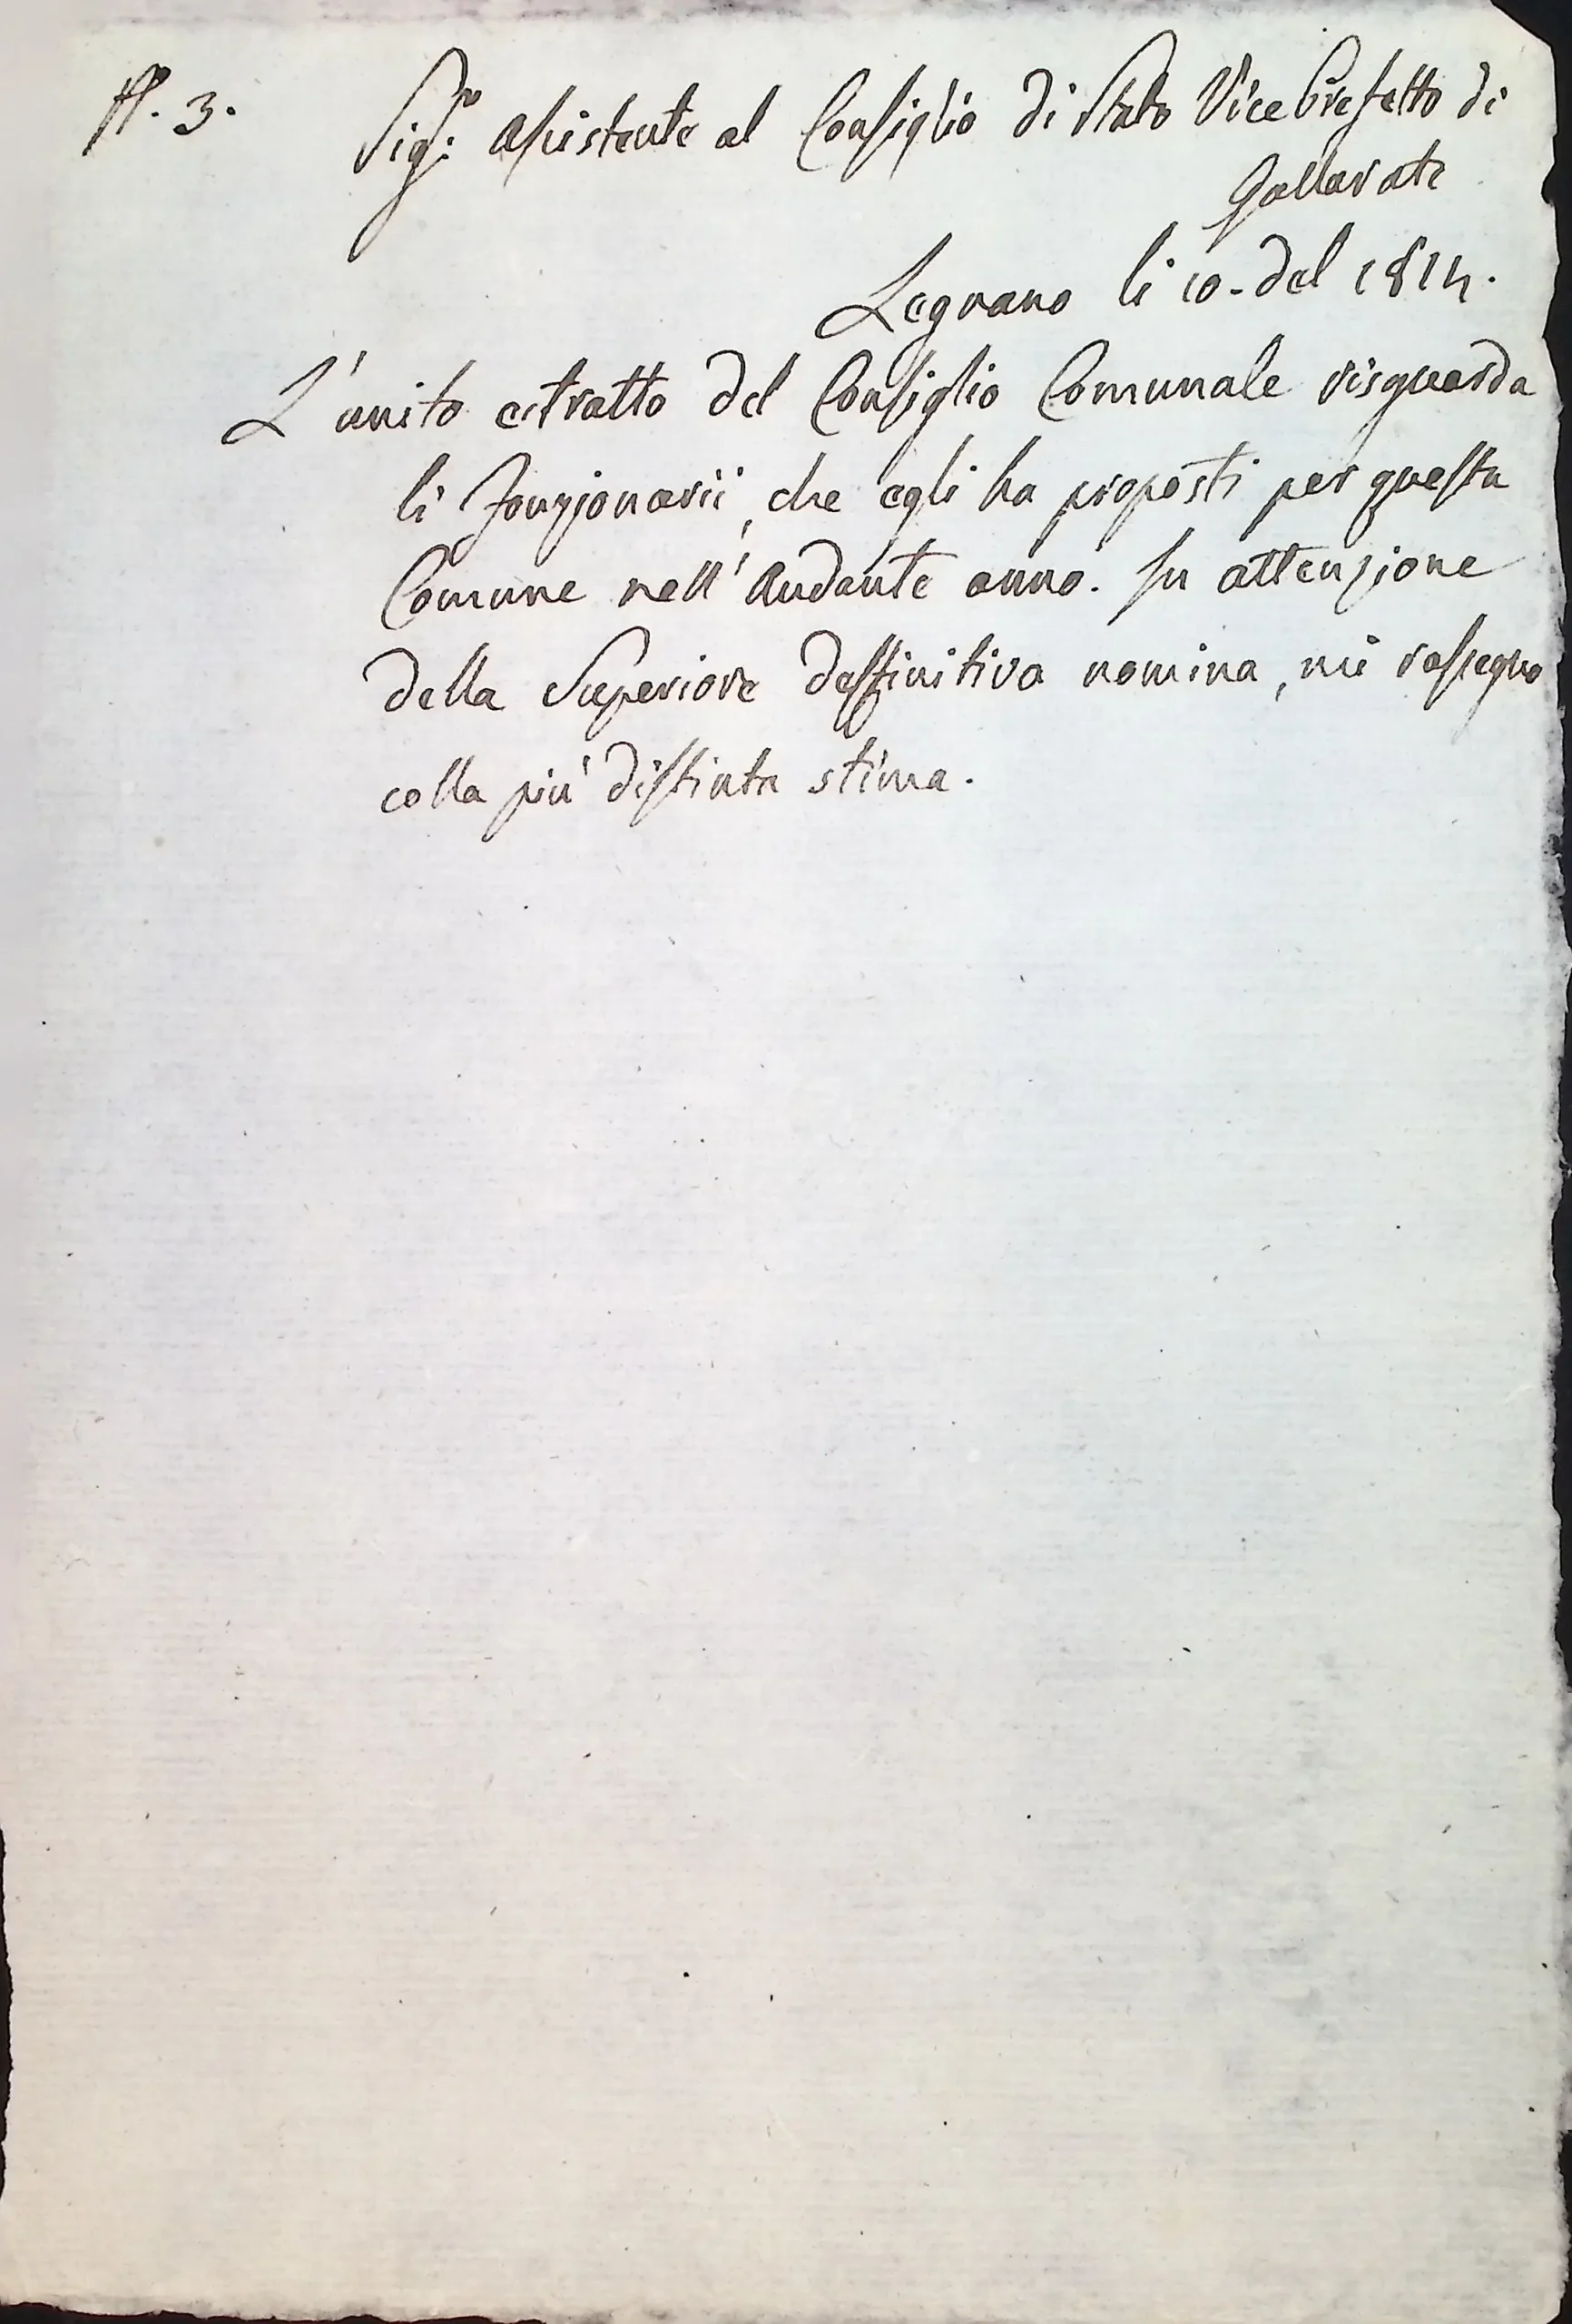 N. 3.
Sig.r Assistente al Consiglio di Stato Vice Prefetto di
Gallarate
Legnano li 10. del 1814.
L'unito estratto del Consiglio Comunale risguarda
li Fonzionarii, che egli ha proposti per questa
Comune nell'Andante anno. In attenzione
della Superiore deffinitiva nomina, mi rassegno
colla più distinta stima.